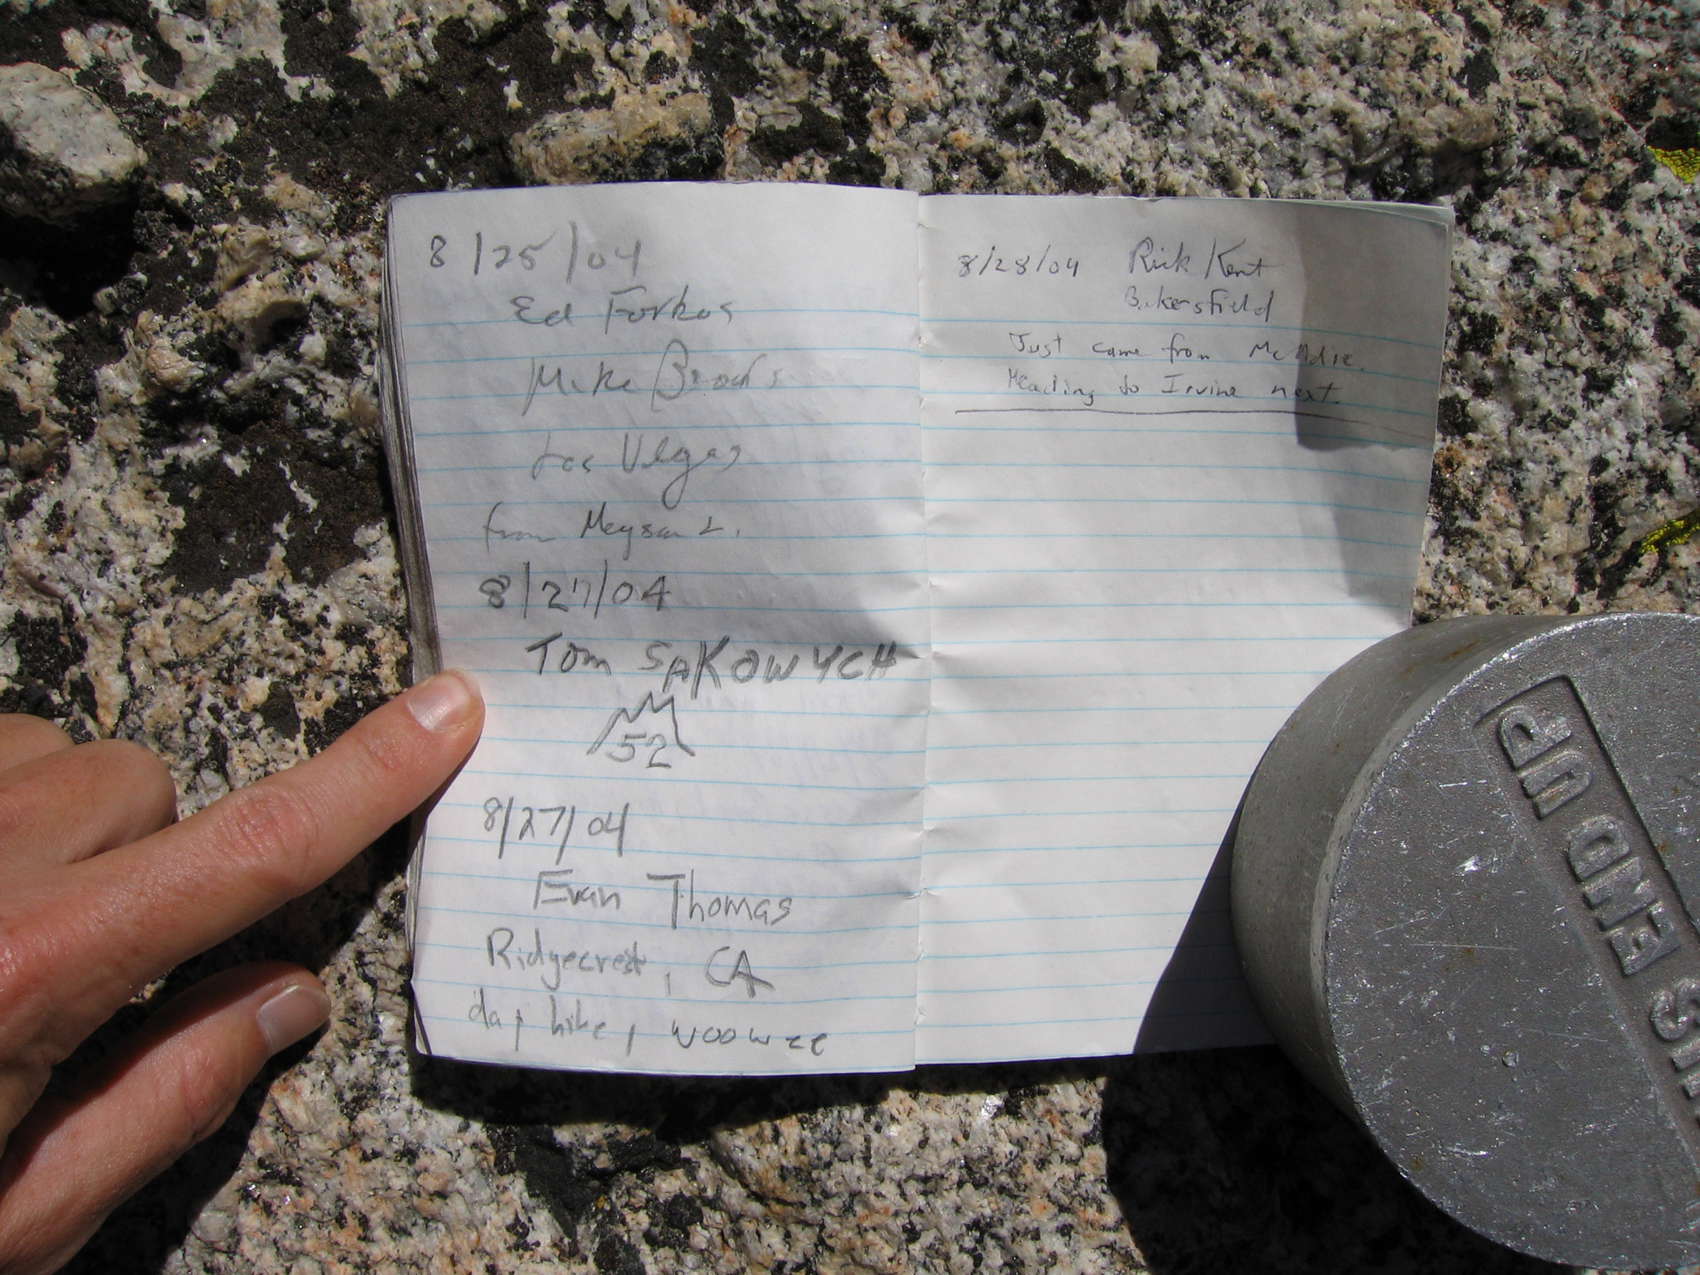 8/25/04
Ed Forkos
Mike
Las Vegas
from Meysan L.
8/27/04
Tom SAKOWYCH
52
8/27/04
Evan Thomas
Ridgecrest, CA
day hike, woowee
8/28/04 Rick Kent
Bakersfield
Just came from McAdie.
Heading to Irvine next.
END UP